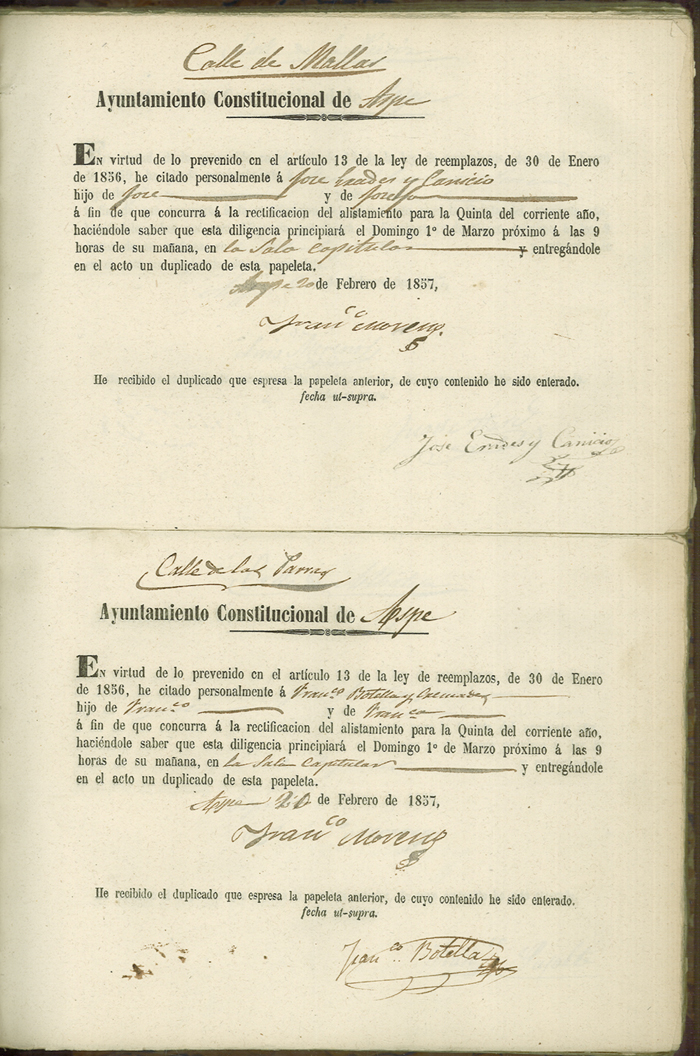 Calle de Mallas
Ayuntamiento Constitucional de Aspe
EN virtud de lo prevenido en el artículo 13 de la ley de reemplazos, de 30 de Enero
de 1856, he citado personalmente á Jose Erades y Canicio
hijo de Jose y de Josefa
á fin de que concurra á la rectificacion del alistamiento para la Quinta del corriente año,
haciéndole saber que esta diligencia principiará el Domingo 1º de Marzo próximo á las 9
horas de su mañana, en la Sala Capitular y entregándole
en el acto un duplicado de esta papeleta.
Aspe 20 de Febrero de 1857,
Franco Moreno
He recibido el duplicado que espresa la papeleta anterior, de cuyo contenido he sido enterado.
fecha ut-supra.
Jose Erades y Canicio
Calle de las Parras
Ayuntamiento Constitucional de Aspe
EN virtud de lo prevenido en el artículo 13 de la ley de reemplazos, de 30 de Enero
de 1856, he citado personalmente á Franco Botella y Cremades
hijo de Franco y de Franca
á fin de que concurra á la rectificacion del alistamiento para la Quinta del corriente año,
haciéndole saber que esta diligencia principiará el Domingo 1º de Marzo próximo á las 9
horas de su mañana, en la Sala Capitular y entregándole
en el acto un duplicado de esta papeleta.
Aspe 20 de Febrero de 1857,
Franco Moreno
He recibido el duplicado que espresa la papeleta anterior, de cuyo contenido he sido enterado.
fecha ut-supra.
Franco Botella